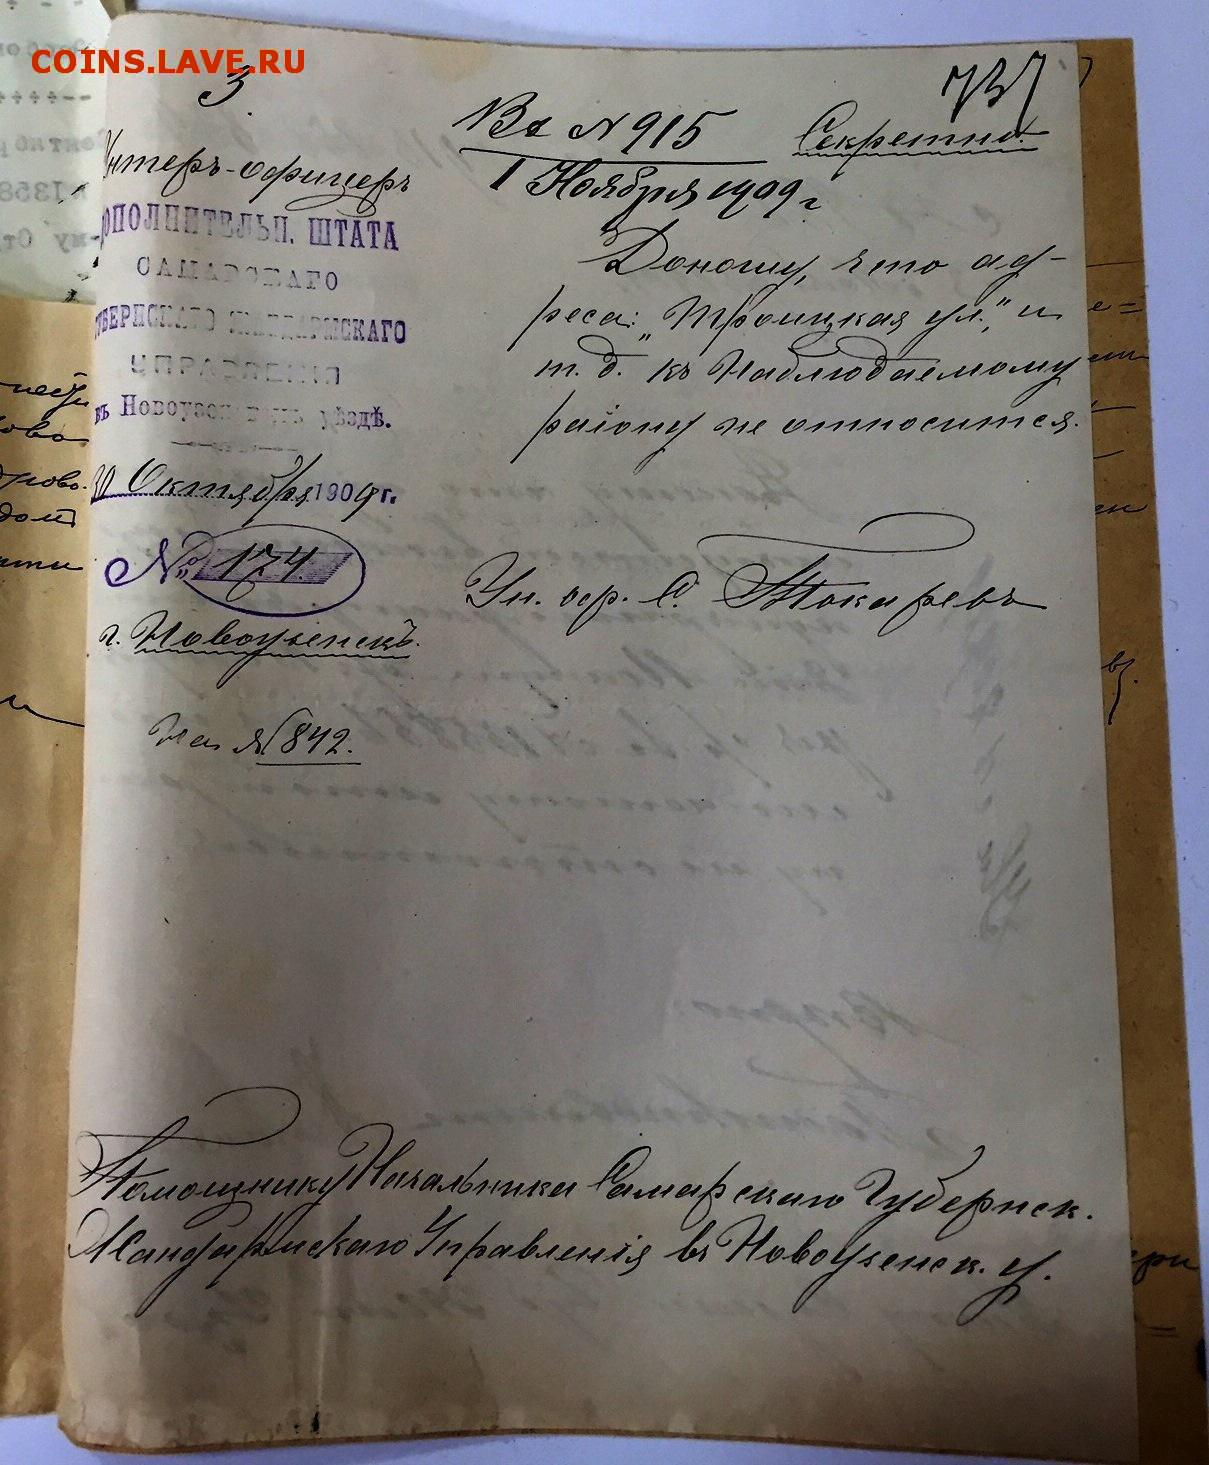 COINS.LAVE.RU
3.
Вх №915
Секретно.
1 Ноября 1909 г
Унтеръ-офицеръ
ДОПОЛНИТЕЛЬН. ШТАТА
САМАРСКАГО
ГУБЕРНСКАГО ЖАНДАРМСКАГО
УПРАВЛЕНІЯ
въ Новоузенскомъ уѣздѣ.
30 Октября 1909 г.
№ 174.
г. Новоузенскъ.
На №842.
Доношу, что ад-
реса: „Троицкая ул.", и
т. д. къ наблюдаемому
району не относится.
Ун. оф. С. Токаревъ
Помощнику Начальника Самарскаго Губернск.
Жандармскаго Управленія въ Новоузенск. у.